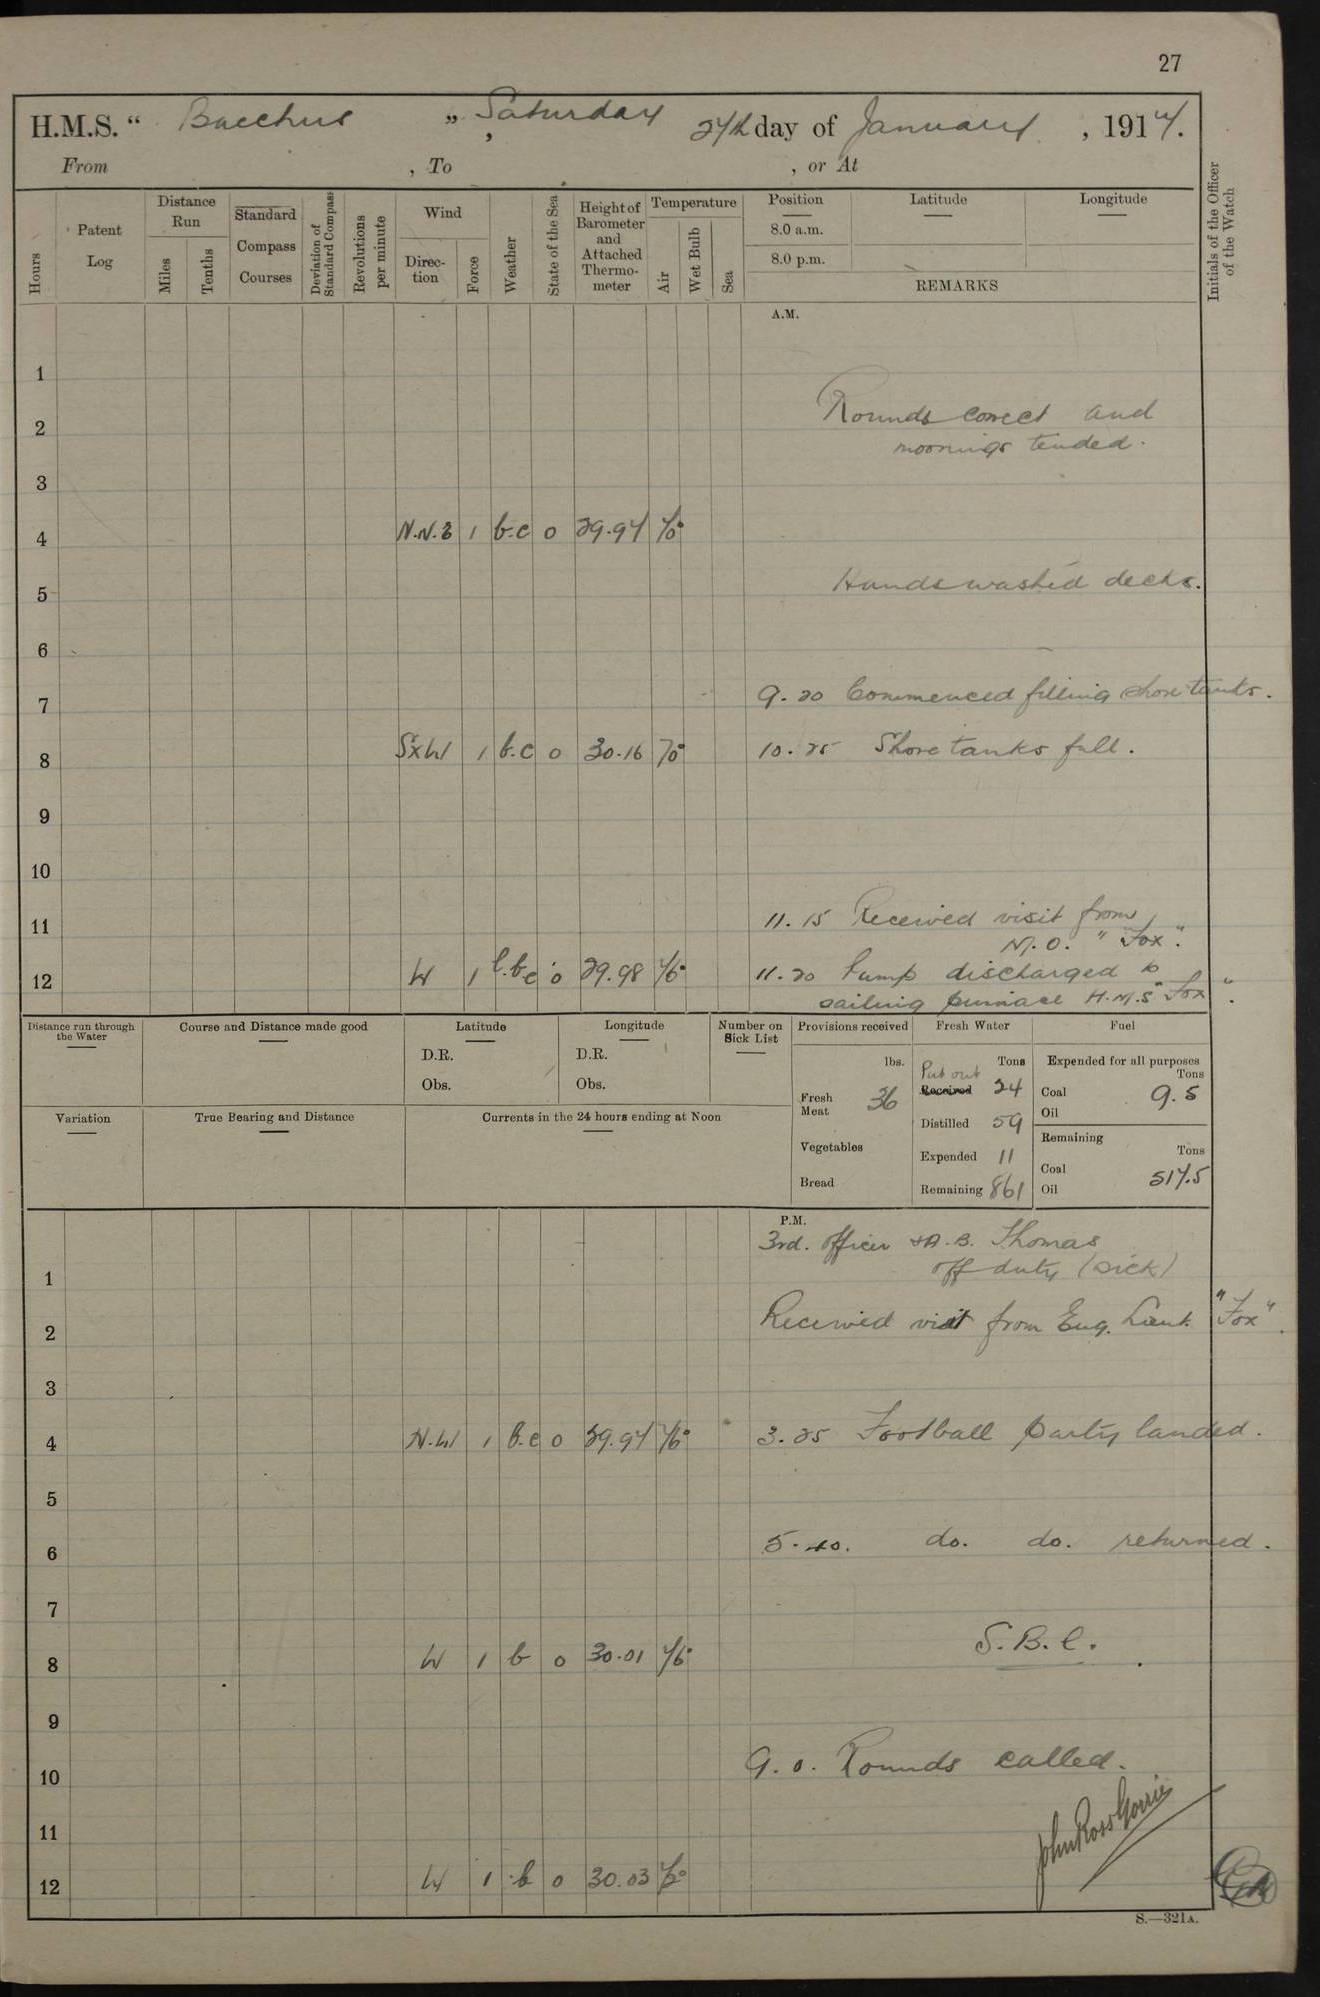 27
H.M.S. “ Bacchus ”, Saturday 24th day of January, 1914.
From , To , or At
Hours
Patent Log
Distance Run
Miles
Tenths
Standard Compass Courses
Deviation of Standard Compass
Revolutions per minute
Wind
Direction
Force
Weather
State of the Sea
Height of Barometer and Attached Thermometer
Temperature
Air
Wet Bulb
Sea
Position
8.0 a.m.
8.0 p.m.
Latitude
Longitude
REMARKS
Initials of the Officer of the Watch
A.M.
1
2 Rounds correct and
moorings tended.
3
4 1 b.c 0 29.94
5 Hands washed decks.
6
7 9.20 Commenced filling shore tanks.
8 SxW 1 b.c 0 30.16 70° 10.25 Shore tanks full.
9
10
11 11.15 Received visit from
M.O. "Fox".
12 W 1 0 29.98 11.20 Pump discharged to
sailing pinnace H.M.S "Fox".
Distance run through the Water
Course and Distance made good
Latitude
D.R.
Obs.
Longitude
D.R.
Obs.
Number on Sick List
Provisions received
lbs.
Fresh Meat 36
Vegetables
Bread
Fresh Water
Tons
Put out
Received 24
Distilled 59
Expended 11
Remaining 861
Fuel
Expended for all purposes
Tons
Coal 9.5
Oil
Remaining
Tons
Coal 517.5
Oil
Variation
True Bearing and Distance
Currents in the 24 hours ending at Noon
P.M.
3rd. Officer & A.B. Thomas
off duty (sick)
1
2 Received visit from Eng. Lieut. "Fox".
3
4 N.W 1 b.c 0 29.94 3.25 Football party landed.
5
6 5.40. do. do. returned.
7
8 W 1 b 0 30.01 S.B.C.
9
10 9.0. Rounds called.
11 John Ross Gorrie
12 W 1 b 0 30.03
S.—321A.